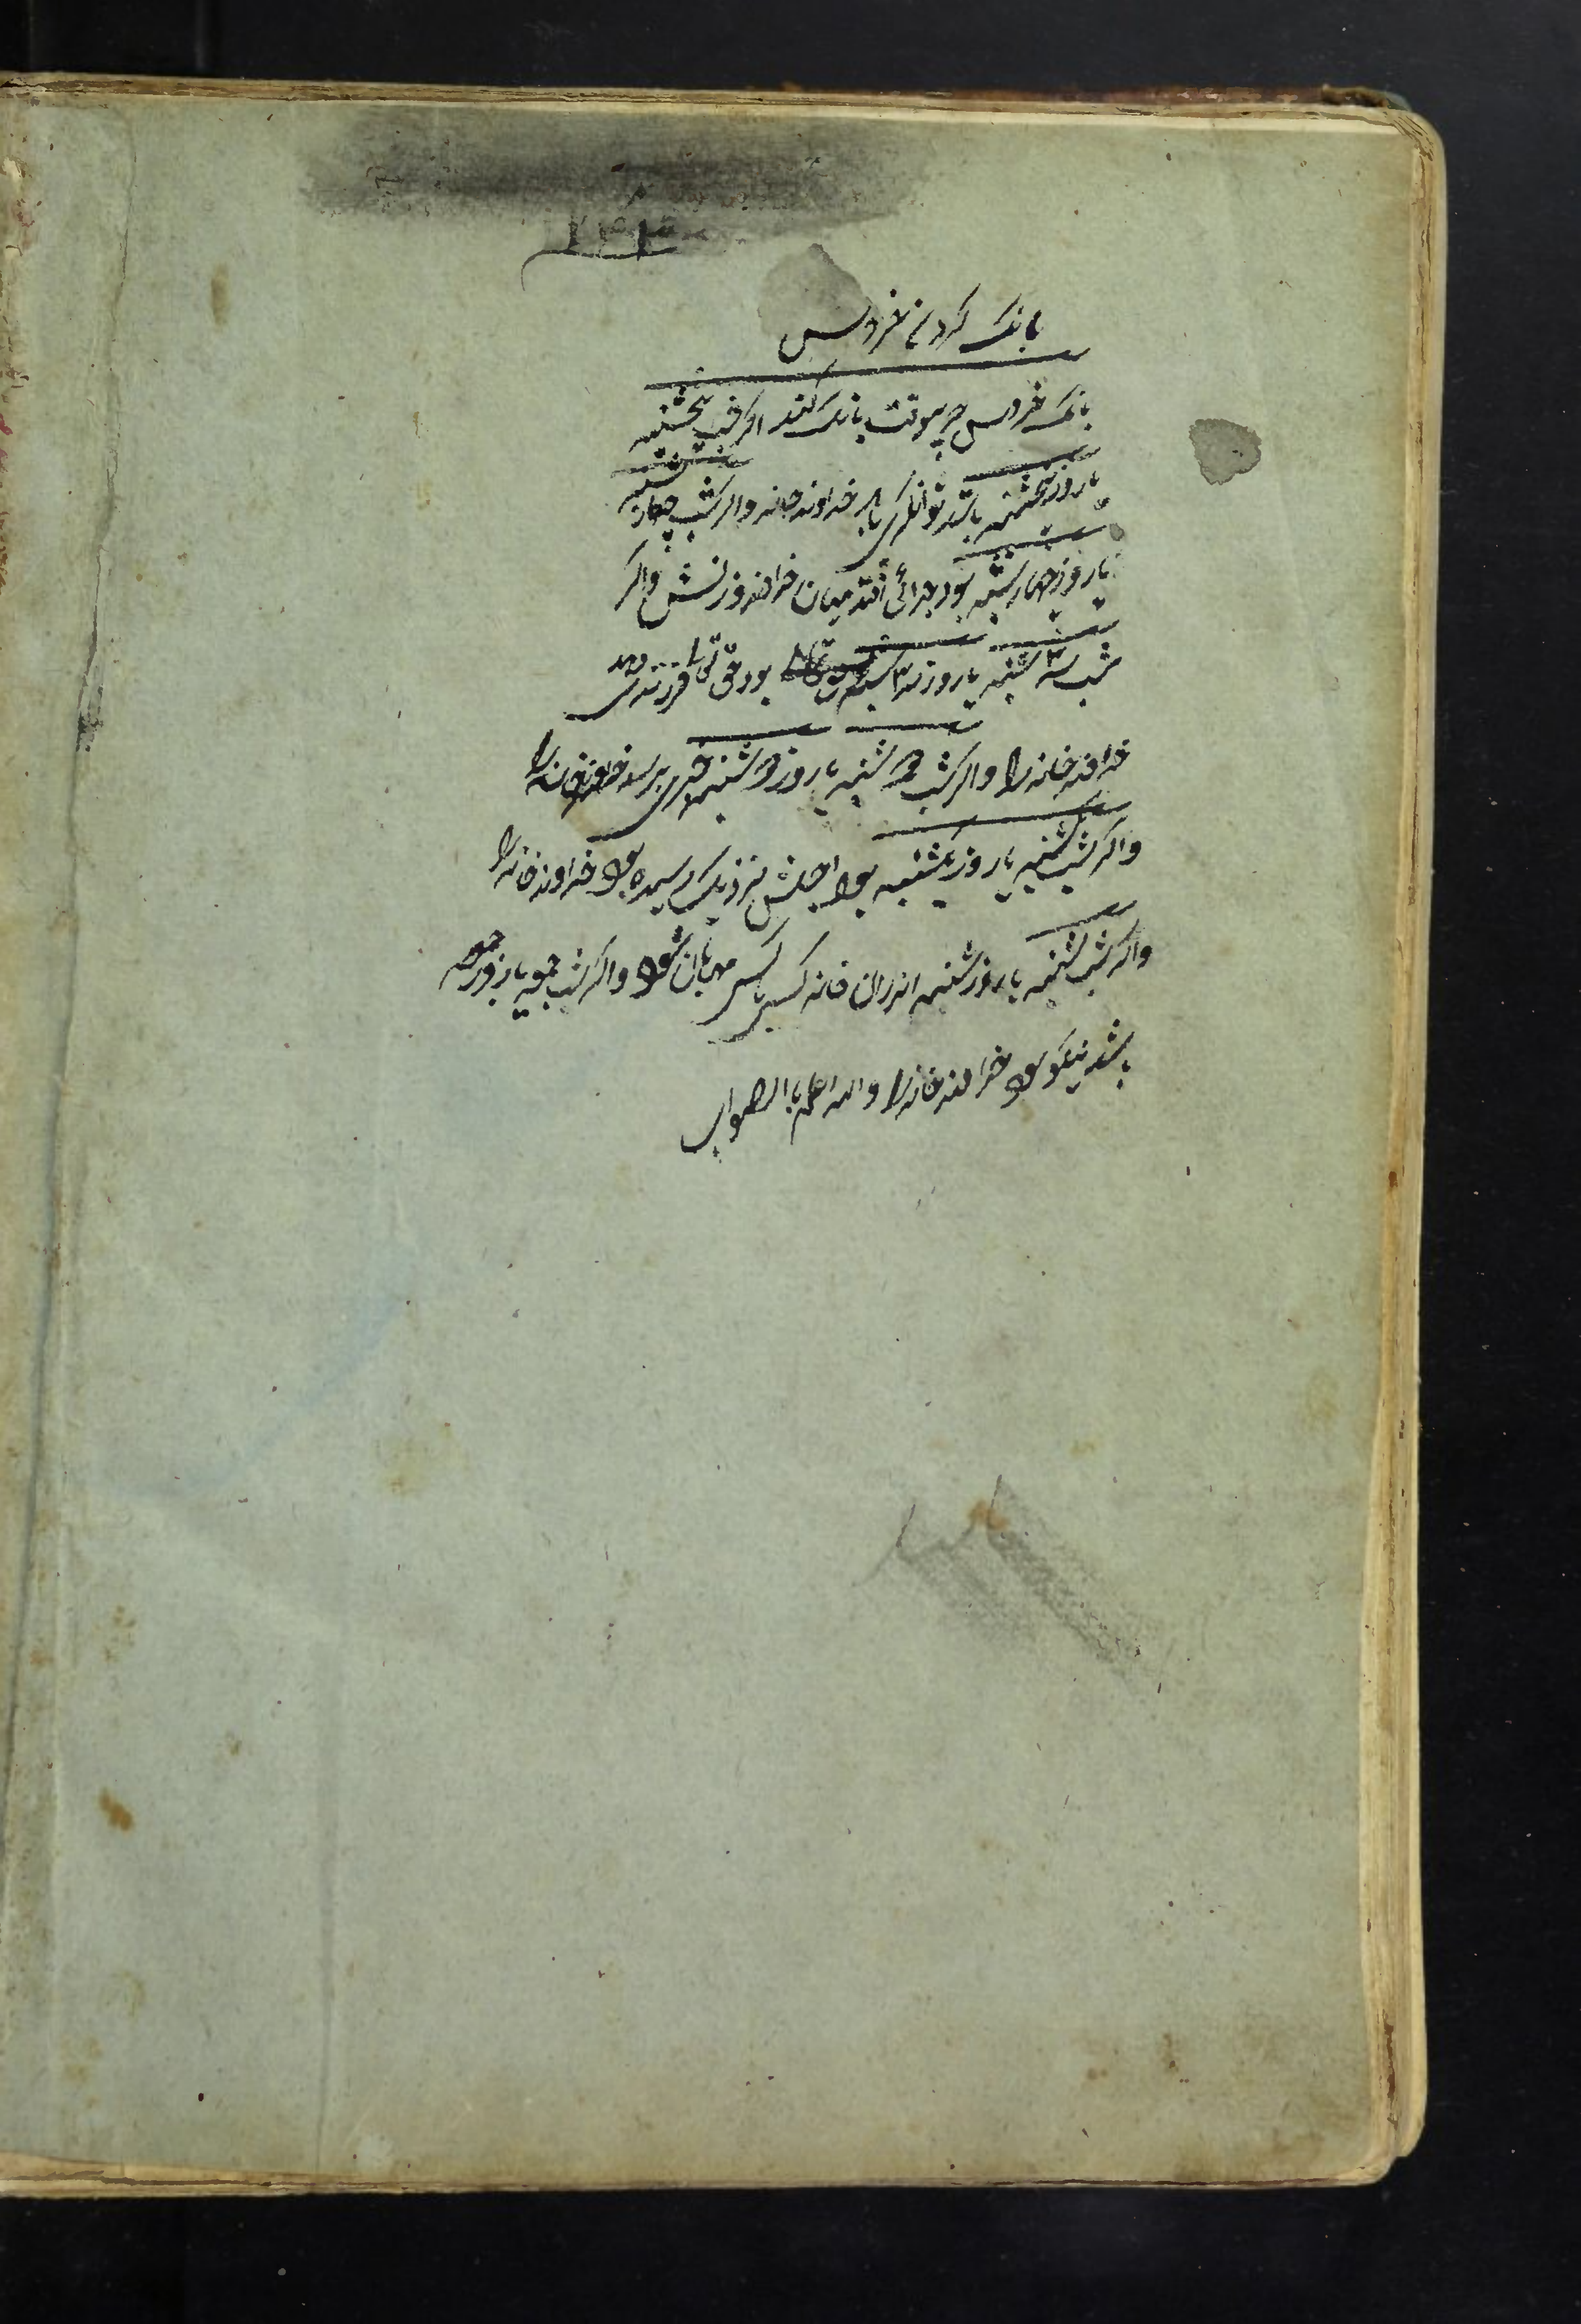 بانک کردن خروس
بانک خروس چو بیوقت بانک کند اکر شب پنجشنبه
یا روز پنجشنبه باشد توانکری یابد خداوند خانه واکر شب چهارشنبه
یا روز چهارشنبه بود جدائی افتد میان خداوند و زنش واکر
شب سه ۳ شنبه یا روز سه ۳ شنبه بود حق تعالی فرزندی دهد
خداوند خانه را واکر شب دوشنبه یا روز دوشنبه بود خیری برسد خداوند خانه را
واکر شب یکشنبه یا روز یکشنبه بود اجلش نزدیک رسیده بود خداوند خانه را
واکر شب شنبه یا روز شنبه اندران خانه کسی با کسی مهربان شود واکر شب جمعه یا روز جمعه
باشد نیکو بود خداوند خانه را والله اعلم باالصواب